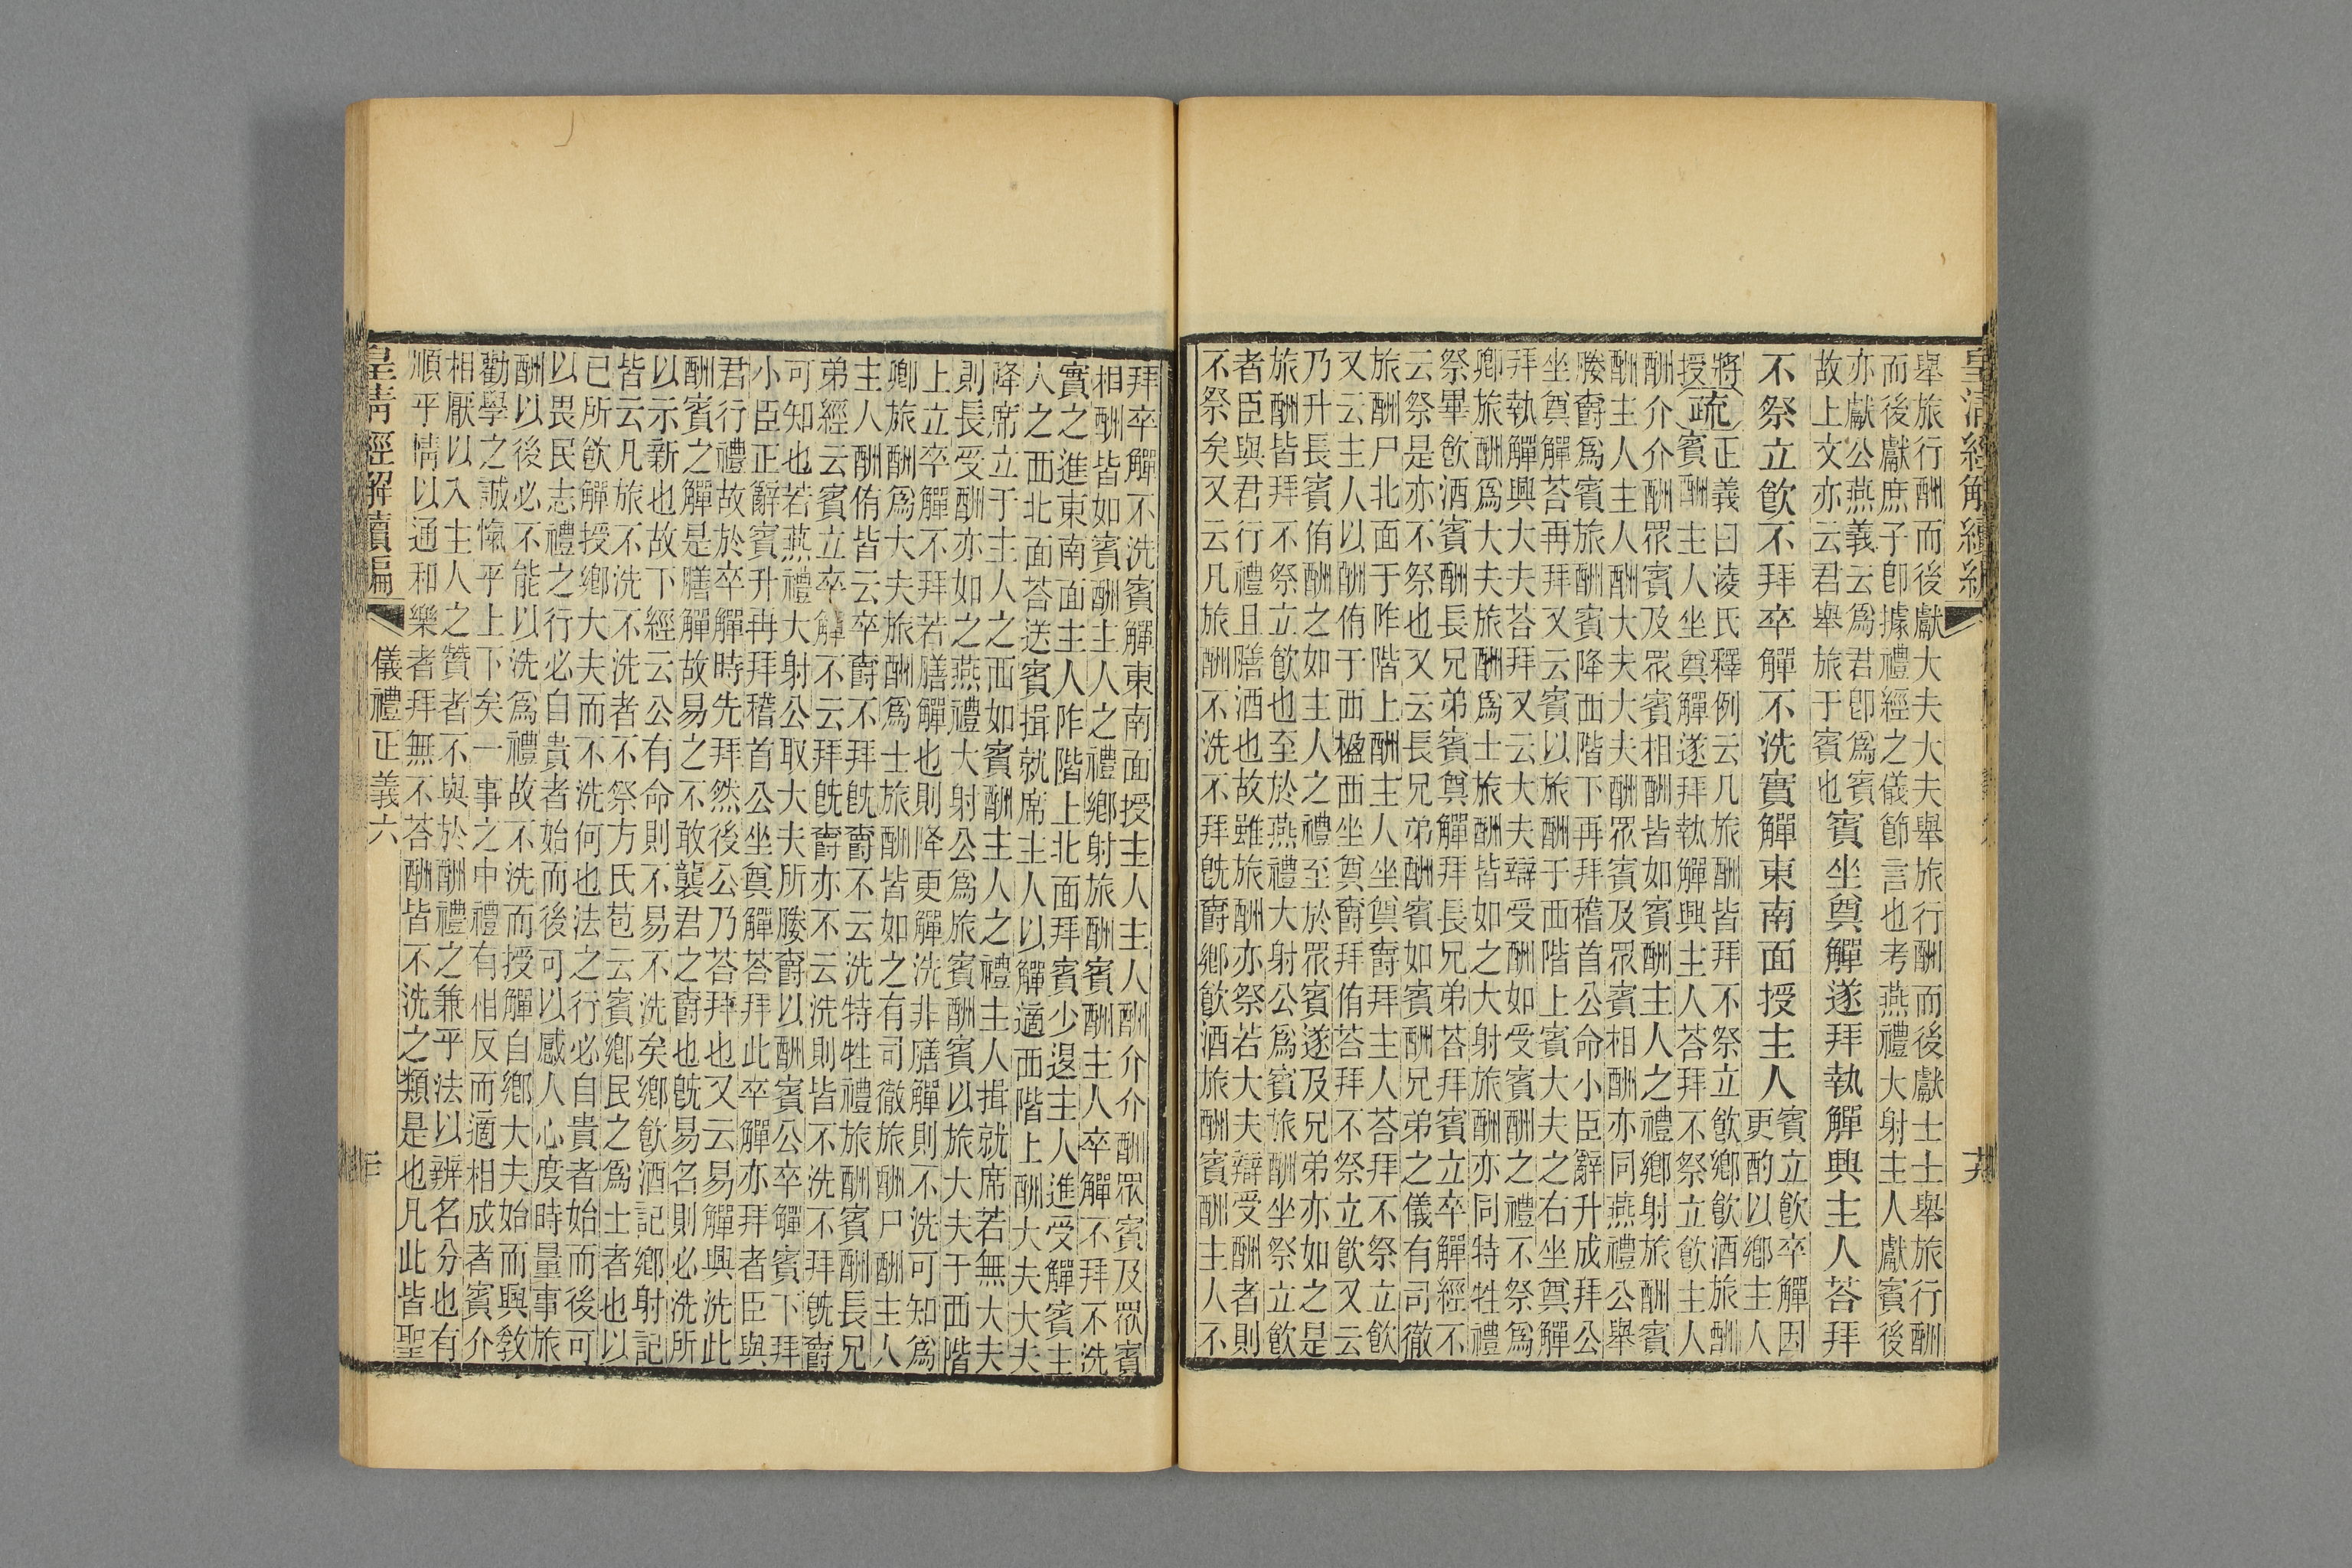 皇清經解續編
舉旅行酬而後獻大夫大夫舉旅行酬而後獻士士舉旅行酬
而後獻庶子卽據禮經之儀節言也考燕禮大射主人獻賓後
亦獻公燕義云爲君卽爲賓
故上文亦云君舉旅于賓也
賓坐奠觶遂拜執觶興主人荅拜
不祭立飮不拜卒觶不洗實觶東南面授主人
賓立飮卒觶因
更酌以鄉主人
將
授
疏
正義曰淩氏釋例云凡旅酬皆拜不祭立飮鄉飮酒旅酬
賓酬主人坐奠觶遂拜執觶興主人荅拜不祭立飮主人
酬介介酬眾賓及眾賓相酬皆如賓酬主人之禮鄉射旅酬賓
酬主人主人酬大夫大夫酬眾賓及眾賓相酬亦同燕禮公舉
媵爵爲賓旅酬賓降西階下再拜稽首公命小臣辭升成拜公
坐奠觶荅再拜又云賓以旅酬于西階上賓大夫之右坐奠觶
拜執觶興大夫荅拜又云大夫辯受酬如受賓酬之禮不祭爲
卿旅酬爲大夫旅酬爲士旅酬皆如之大射旅酬亦同特牲禮
祭畢飮酒賓酬長兄弟賓奠觶拜長兄弟荅拜賓立卒觶經不
云祭是亦不祭也又云長兄弟酬賓如賓酬兄弟之儀有司徹
旅酬尸北面于阼階上酬主人坐奠爵拜主人荅拜不祭立飮
又云主人以酬侑于西楹西坐奠爵拜侑荅拜不祭立飮又云
乃升長賓侑酬之如主人之禮至於眾賓遂及兄弟亦如之是
旅酬皆拜不祭立飮也至於燕禮大射公爲賓旅酬坐祭立飮
者臣與君行禮且膳酒也故雖旅酬亦祭若大夫辯受酬者則
不祭矣又云凡旅酬不洗不拜旣爵鄉飮酒旅酬賓酬主人不
拜卒觶不洗賓觶東南面授主人主人酬介介酬眾賓及眾賓
相酬皆如賓酬主人之禮鄉射旅酬賓酬主人卒觶不拜不洗
實之進東南面主人阼階上北面拜賓少退主人進受觶賓主
人之西北面荅送賓揖就席主人以觶適西階上酬大夫大夫
降席立于主人之西如賓酬主人之禮主人揖就席若無大夫
則長受酬亦如之燕禮大射公爲旅賓酬賓以旅大夫于西階
上立卒觶不拜若膳觶也則降更觶洗非膳觶則不洗可知爲
卿旅酬爲大夫旅酬爲士旅酬皆如之有司徹旅酬尸酬主人
主人酬侑皆云卒爵不拜旣爵不云洗特牲禮旅酬賓酬長兄
弟經云賓立卒觶不云拜旣爵亦不云洗則皆不洗不拜旣爵
可知也若燕禮大射公取大夫所媵爵以酬賓公卒觶賓下拜
小臣正辭賓升再拜稽首公坐奠觶荅拜此卒觶亦拜者臣與
君行禮故於卒觶時先拜然後公乃荅拜也又云易觶興洗此
酬賓之觶是膳觶故易之不敢襲君之爵也旣易名則必洗所
以示新也故下經云公有命則不易不洗矣鄉飮酒記鄉射記
皆云凡旅不洗不洗者不祭方氏苞云賓鄉民之爲士者也以
已所飮觶授鄉大夫而不洗何也法之行必自貴者始而後可
以畏民志禮之行必自貴者始而後可以感人心度時量事旅
酬以後必不能以洗爲禮故不洗而授觶自鄉大夫始而興敎
勸學之誠愾乎上下矣一事之中禮有相反而適相成者賓介
相厭以入主人之贊者不與於酬禮之兼乎法以辨名分也有
順乎情以通和樂者拜無不荅酬皆不洗之類是也凡此皆聖
皇清經解續編 儀禮正義六